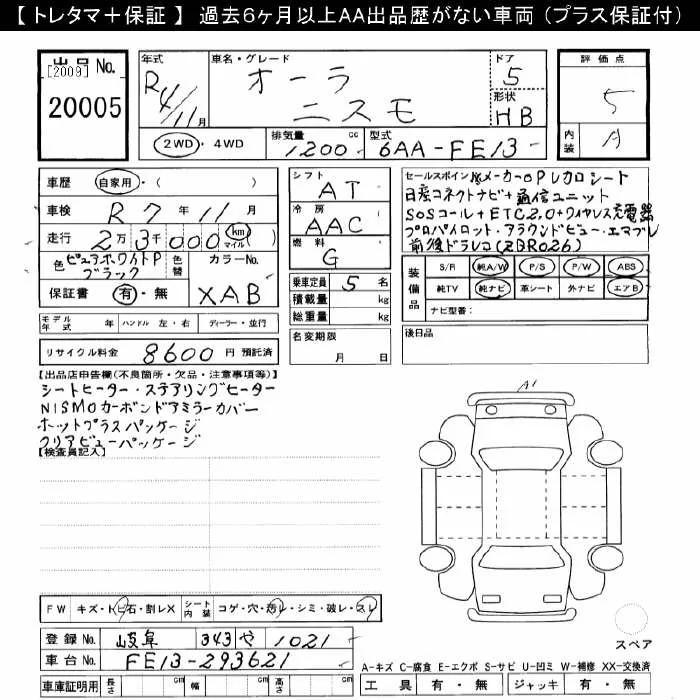 【 トレタマ＋保証 】 過去6ヶ月以上AA出品歴がない車両（プラス保証付）
出品 No.
[2009]
20005
年式 R4/11月
車名・グレード オーラ ニスモ
ドア 5
形状 HB
評価点 5
内装 A
2WD・4WD
排気量 1200 cc
型式 6AA-FE13
車歴 自家用・（ ）
車検 R7年 11月
走行 2万3千000 km マイル
色 ピュアホワイトP ブラック
色替
カラーNo. XAB
保証書 有・無
シフト AT
冷房 AAC
燃料 G
乗車定員 5 名
積載量 kg
総重量 kg
名変期限 月 日
セールスポイント メーカーOPレカロシート
日産コネクトナビ+通信ユニット
SOSコール+ETC2.0+ワイヤレス充電器
プロパイロット・アラウンドビュー・エマブレ
前後ドラレコ(ZBR026)
装備品
S/R 純A/W P/S P/W ABS
純TV 純ナビ 革シート 外ナビ エアB
ナビ型番：
後日品
モデル年式 年 ハンドル 左・右 ディーラー・並行
リサイクル料金 8600 円 預託済
【出品店申告欄(不良箇所・欠品・注意事項等)】
シートヒーター・ステアリングヒーター
NISMOカーボンドアミラーカバー
ホットプラスパッケージ
クリアビューパッケージ
【検査員記入】
A1
FW キズ・トビ石・割レX
シート内装 コゲ・穴・汚レ・シミ・破レ・スレ
登録 No. 岐阜 343 や 1021
車台 No. FE13-293621
車庫証明用 長さ cm 幅 cm 高さ cm
スペア
A-キズ C-腐食 E-エクボ S-サビ U-凹ミ W-補修 XX-交換済
工具 有・無 ジャッキ 有・無